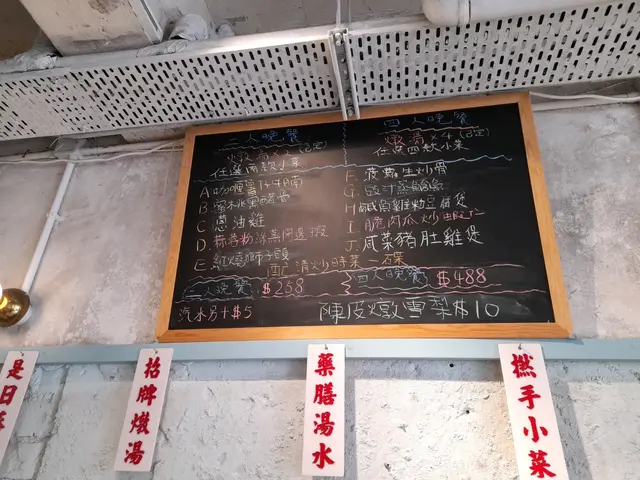 二人晚餐
燉湯x2(已定)
任選兩款小菜
四人晚餐
燉湯x4(已定)
任選四款小菜
A
B
C 蔥油雞
D. 蒜蓉粉絲蒸開邊蝦
E. 紅燒獅子頭
F. 菠蘿生炒骨
G. 豉汁蒸
H 鹹魚雞粒豆腐煲
I. 脆肉瓜炒蝦仁
J. 咸菜豬肚雞煲
配 清炒時菜一碟
二人晚餐 $258
四人晚餐 $488
汽水另+$5
陳皮燉雪梨 $10
是日
招牌燉湯
藥膳湯水
撚手小菜